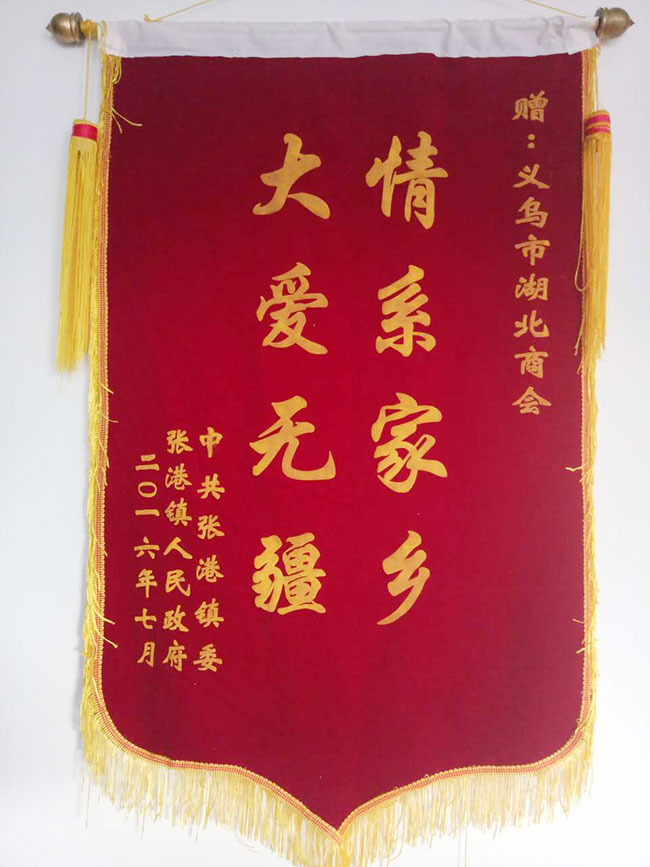 赠：义乌市湖北商会
情系家乡
大爱无疆
中共张港镇委
张港镇人民政府
二〇一六年七月